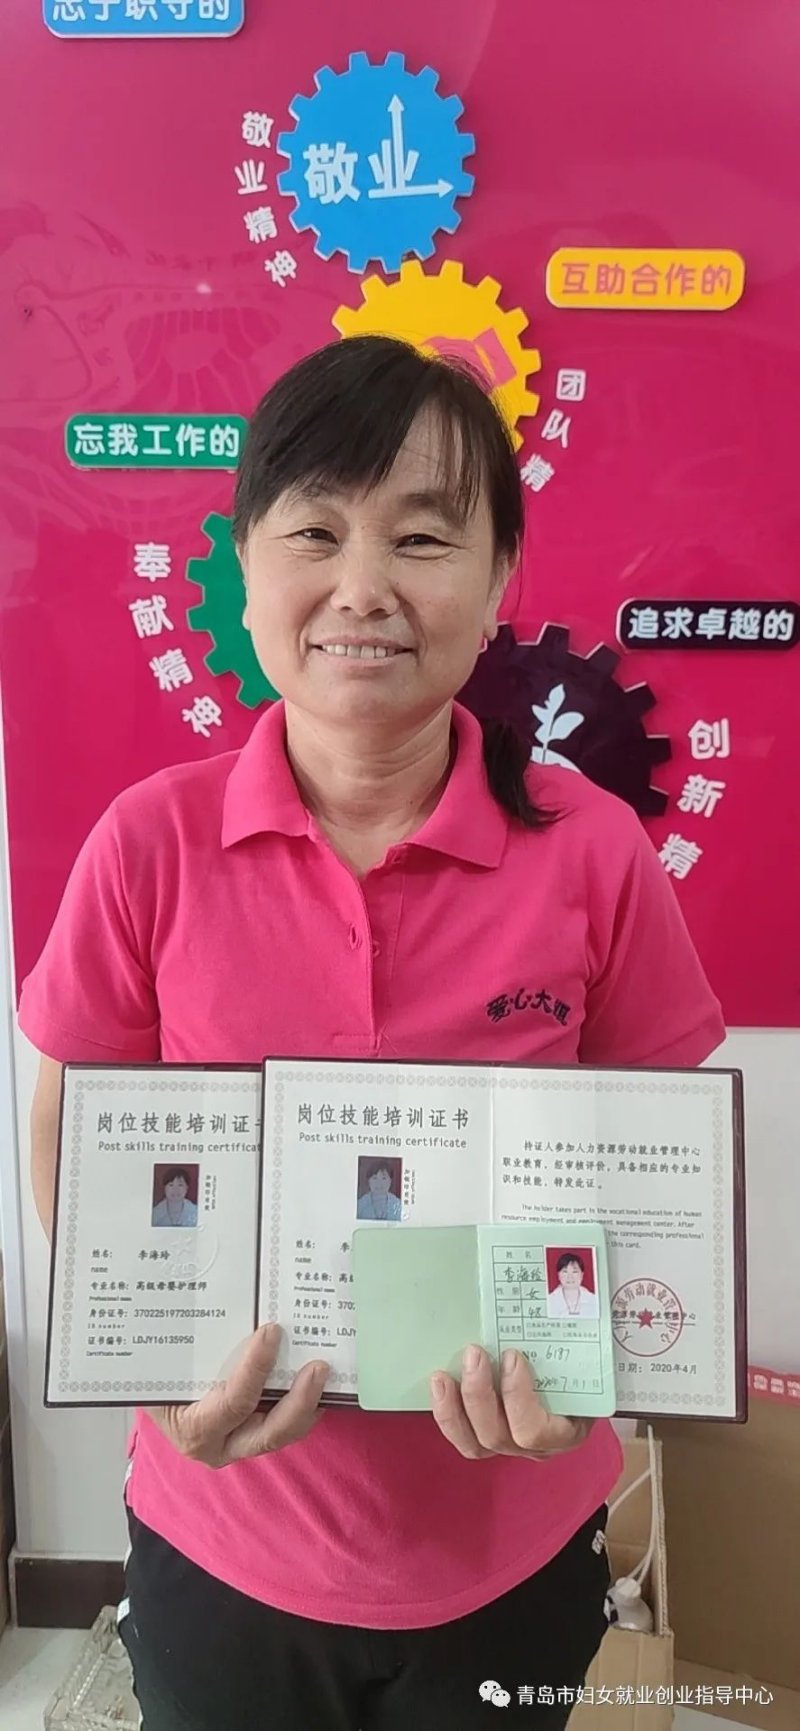 忠于职守的
敬业
敬业精神
互助合作的
团队精
忘我工作的
奉献精神
追求卓越的
创新精
爱心大姐
岗位技能培训证书
Post skills training certificate
姓名: 李海玲
name
专业名称: 高级母婴护理师
Professional name
身份证号: 370225197203284124
ID number
证书编号: LDJY16135950
Certificate number
岗位技能培训证书
Post skills training certificate
姓名: 李
name
专业名称: 高级
Professional name
身份证号: 3702
ID number
证书编号: LDJY
Certificate number
持证人参加人力资源劳动就业管理中心
职业教育，经审核评价，具备相应的专业知
识和技能，特发此证。
The holder takes part in the vocational education of human
resource employment and employment management center. After
the corresponding professional
this card.
日期: 2020年4月
姓名 李海玲
性别 女
年龄 48
从业类型
No 6187
2020年7月1日
青岛市妇女就业创业指导中心